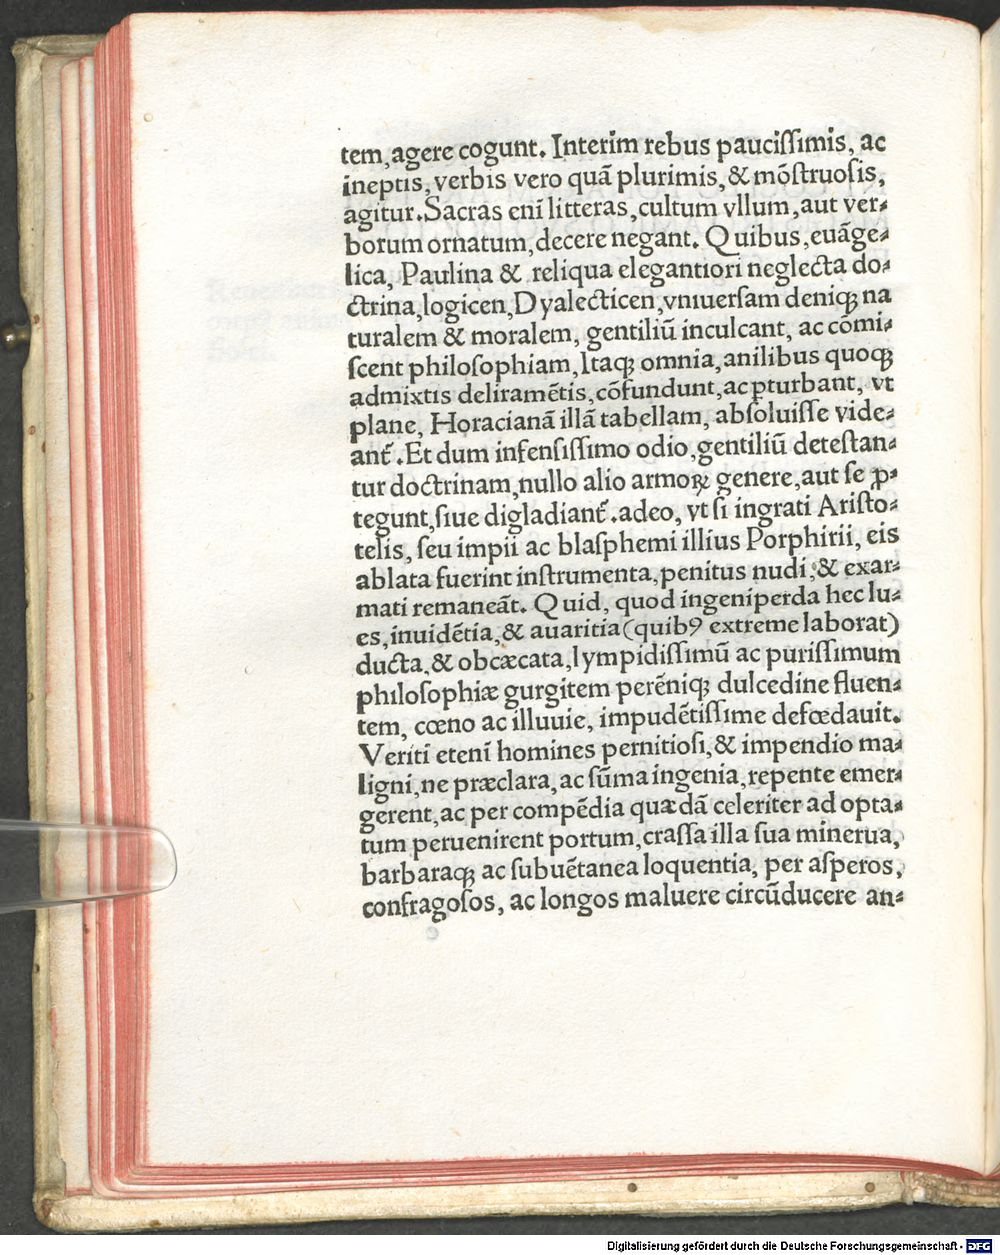 tem,agere cogunt. Interim rebus pauciſſimis, ac
ineptis,verbis vero quā plurimis,& mōſtruoſis,
agitur.Sacras enī litteras,cultum vllum,aut ver⸗
borum ornatum,decere negant. Quibus,euāge⸗
lica, Paulina & reliqua elegantiori neglecta do⸗
ctrina,logicen,Dyalecticen,vniuerſam deniqꝫ na
turalem & moralem, gentiliū inculcant, ac cōmi⸗
ſcent philoſophiam,Itaqꝫ omnia,anilibus quoqꝫ
admixtis deliramētis,cōfundunt,ac ꝑturbant, vt
plane, Horacianā illā tabellam, abſoluiſſe vide⸗
ant᷑.Et dum infenſiſſimo odio,gentiliū deteſtan⸗
tur doctrinam,nullo alio armoꝝ genere,aut ſe ꝓ⸗
tegunt,ſiue digladiant᷑.adeo, vt ſi ingrati Ariſto⸗
telis, ſeu impii ac blaſphemi illius Porphirii, eis
ablata fuerint inſtrumenta,penitus nudi,& exar⸗
mati remaneāt. Quid, quod ingeniperda hec lu⸗
es,inuidētia,& auaritia(quibꝰ extreme laborat)
ducta,& obcæcata,lympidiſſimū ac puriſſimum
philoſophiæ gurgitem perēniqꝫ dulcedine fluen⸗
tem, cœno ac illuuie, impudētiſſime defœdauit.
Veriti etenī homines pernitioſi,& impendio ma⸗
ligni,ne præclara,ac ſūma ingenia,repente emer⸗
gerent,ac per compēdia quædā celeriter ad opta⸗
tum peruenirent portum,craſſa illa ſua minerua,
barbaraqꝫ ac ſubuētanea loquentia, per aſperos,
confragoſos, ac longos maluere circūducere an⸗
Digitalisierung gefördert durch die Deutsche Forschungsgemeinschaft - DFG